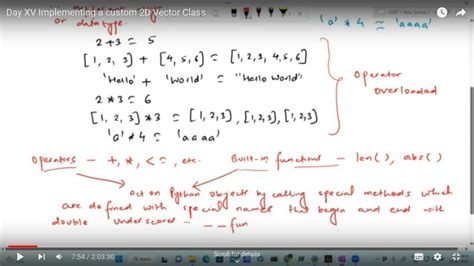 Day XV Implementing a custom 2D Vector Class
or data type.
'a' * 4 = 'aaaa'
2+3 = 5
[1, 2, 3] + [4, 5, 6] = [1, 2, 3, 4, 5, 6]
'Hello' + 'World' = "Hello World"
2 * 3 = 6
[1, 2, 3] * 3 = [1, 2, 3], [1, 2, 3], [1, 2, 3]
'a' * 4 = 'aaaa'
Operator
overloaded
Operators - +, *, <=, etc. Built-in functions - len(), abs()
act on Python objects by calling special methods which
are defined with special names that begin and end with
double underscores - __fun
7:54 / 2:03:30
Scroll for details